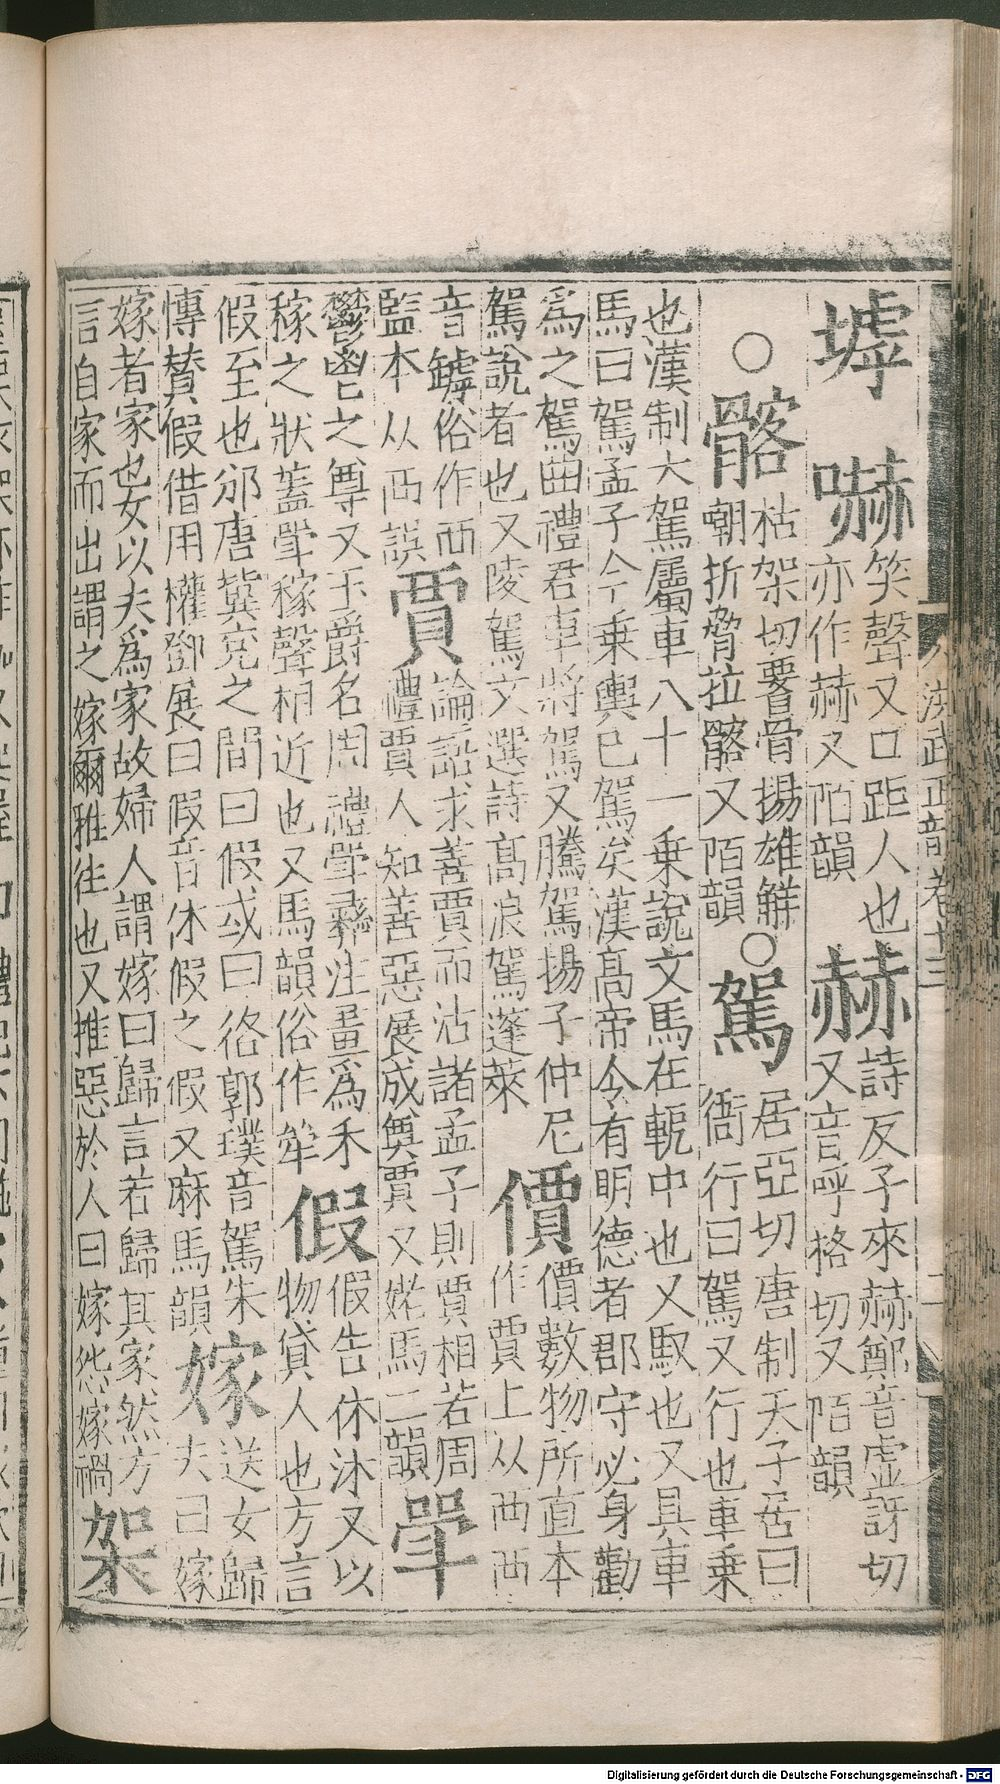 洪武正韻卷十三
㙤 嚇笑聲又口距人也亦作赫又陌韻 赫詩反予來赫鄭音虛訝切又音呼格切又陌韻
○髂枯架切䯊骨揚雄解嘲折脅拉髂又陌韻○駕居亞切唐制天子居曰衙行曰駕又行也車乗
也漢制大駕屬車八十一乗說文馬在軛中也又馭也又具車
馬曰駕孟子今乗輿已駕矣漢高帝令有明德者郡守必身勸
為之駕曲禮君車將駕又騰駕揚子仲尼
駕說者也又陵駕文選詩高浪駕蓬萊 價價數物所直本作賈上从襾西
音罅俗作西監本从襾誤 賈論語求善賈而沽諸孟子則賈相若周
禮賈人知善惡展成奠賈又姥馬二韻 斝
鬱鬯之尊又玉爵名周禮斝彝注畫為禾
稼之狀蓋斝稼聲相近也又馬韻俗作斚 假假告休沐又以物貸人也方言
假至也邠唐冀兖之間曰假或曰佫郭璞音駕朱
博賛假借用權鄧展曰假音休假之假又麻馬韻 嫁送女歸夫曰嫁
嫁者家也女以夫為家故婦人謂嫁曰歸言若歸其家然方
言自家而出謂之嫁爾雅往也又推惡於人曰嫁怨嫁禍 架
Digitalisierung gefördert durch die Deutsche Forschungsgemeinschaft - DFG